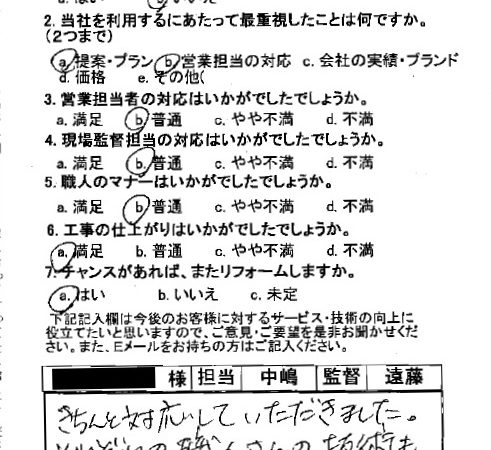 2. 当社を利用するにあたって最重視したことは何ですか。
(2つまで)
a. 提案・プラン b. 営業担当の対応 c. 会社の実績・ブランド
d. 価格 e. その他(
3. 営業担当者の対応はいかがでしたでしょうか。
a. 満足 b. 普通 c. やや不満 d. 不満
4. 現場監督担当の対応はいかがでしたでしょうか。
a. 満足 b. 普通 c. やや不満 d. 不満
5. 職人のマナーはいかがでしたでしょうか。
a. 満足 b. 普通 c. やや不満 d. 不満
6. 工事の仕上がりはいかがでしたでしょうか。
a. 満足 b. 普通 c. やや不満 d. 不満
7. チャンスがあれば、またリフォームしますか。
a. はい b. いいえ c. 未定
下記記入欄は今後のお客様に対するサービス・技術の向上に
役立てたいと思いますので、ご意見・ご要望を是非お聞かせくだ
さい。また、Eメールをお持ちの方はご記入ください。
様 担当 中嶋 監督 遠藤
きちんと対応していただきました。